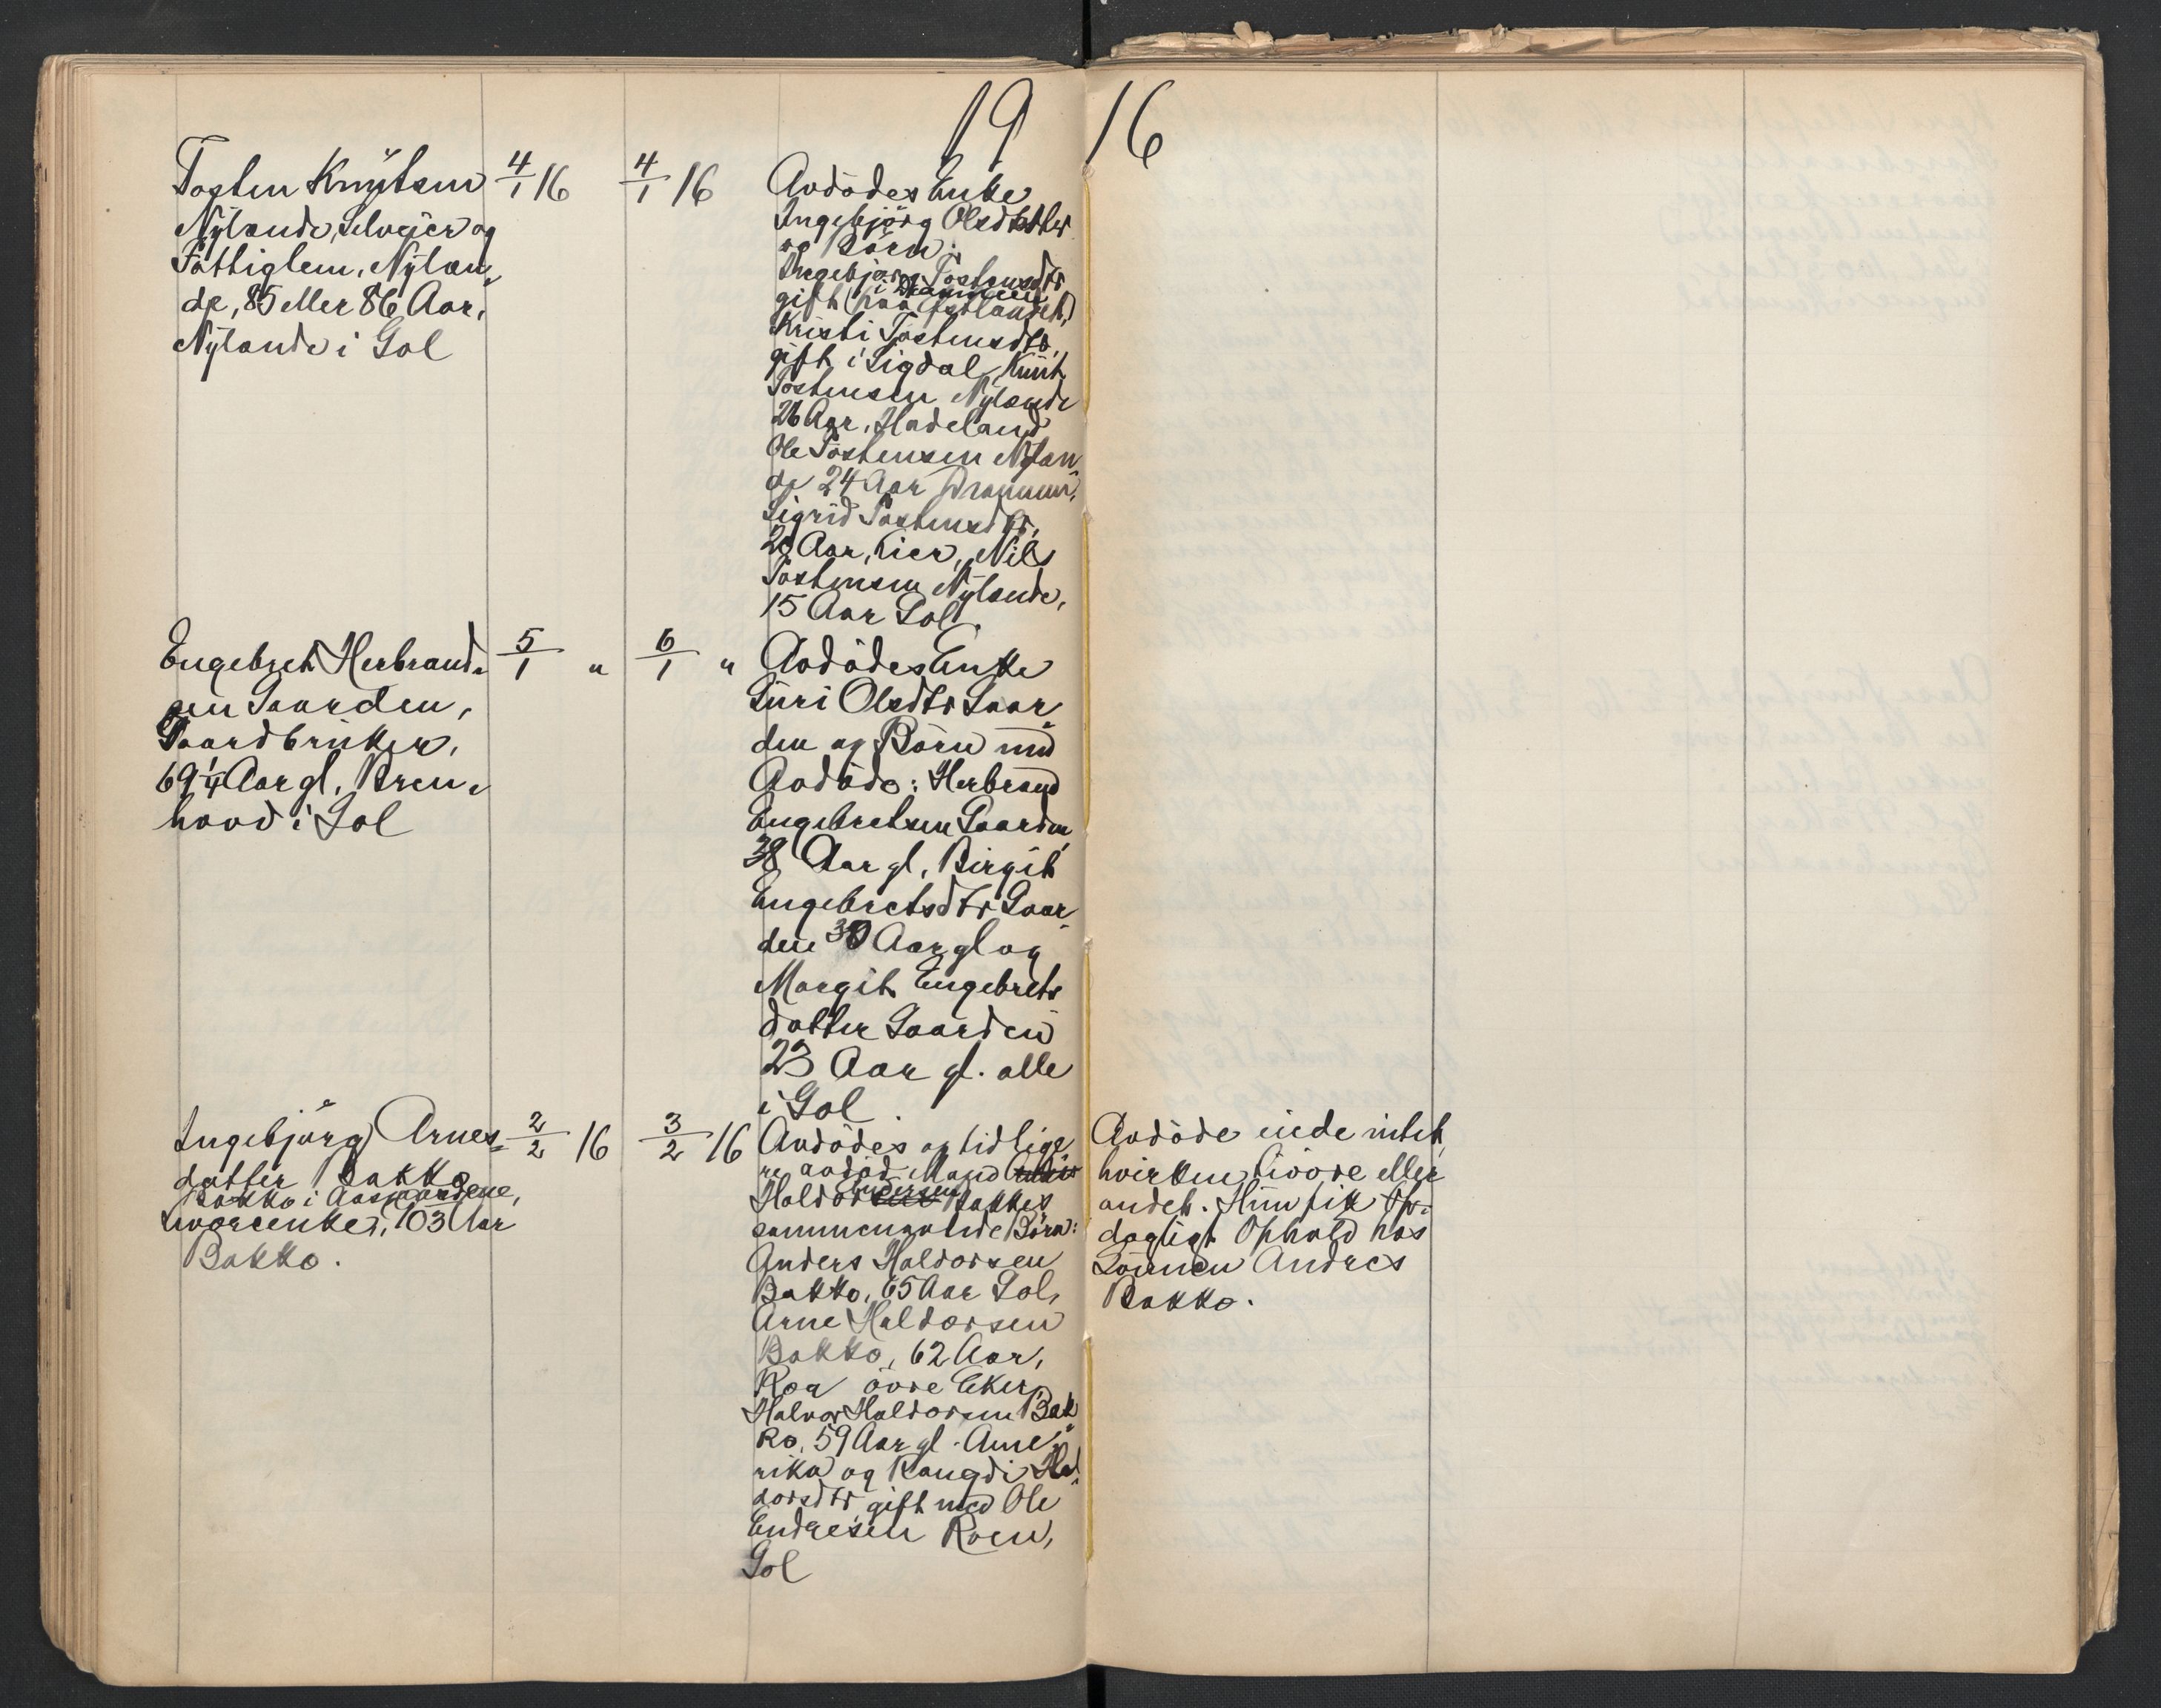 1916
Tosten Knutsen
Nylande, Selveier og
Fattiglem, Nylan-
de, 85 eller 86 Aar,
Nylande i Gol
4/1 16
4/1 16
Avdödes Enke
Ingebjörg Olsdatter
og Börn:
Ingebjörg Tostensdtr
gift (paa Østlandet)
i Drammen
Kristi Tostensdtr,
gift i Sigdal, Knut
Tostensen Nylande
26 Aar, Hadeland
Ole Tostensen Nylan-
de 24 Aar Drammen,
Sigrid Tostensdtr,
20 Aar, Lier, Nils
Tostensen Nylande,
15 Aar Gol.
Engebret Herbrand-
sen Gaarden,
Gaardbruker,
69 1/4 Aar gl, Bren-
hovd i Gol
5/1 "
6/1 "
Avdödes Enke
Guri Olsdtr Gaar-
den og Börn med
Avdöde: Herbrand
Engebretsen Gaarden
38 Aar gl, Birgit
Engebretsdtr Gaar-
den 30 Aar gl og
Margit Engebrets
datter Gaarden
23 Aar gl. alle
i Gol.
Ingebjörg Arnes-
datter Bakko
Bakko i Aasgaardene,
103 Aar
Bakko.
2/2 16
3/2 16
Avdödes og tidlige-
re avdöd Mand
Haldor Andersen Bakkos
sammenavlede Börn:
Anders Haldorsen
Bakko, 65 Aar Gol,
Arne Haldorsen
Bakko, 62 Aar,
Roa övre Eker,
Halvor Haldorsen Bak-
ko, 59 Aar gl. Ame-
rika og Rangdi Hal-
dorsdtr gift med Ole
Endresen Roen,
Gol
Avdöde eiede intet,
hverken Livöre eller
andet. Hun fik
dagligt Ophold hos
Sönnen Andres
Bakko.